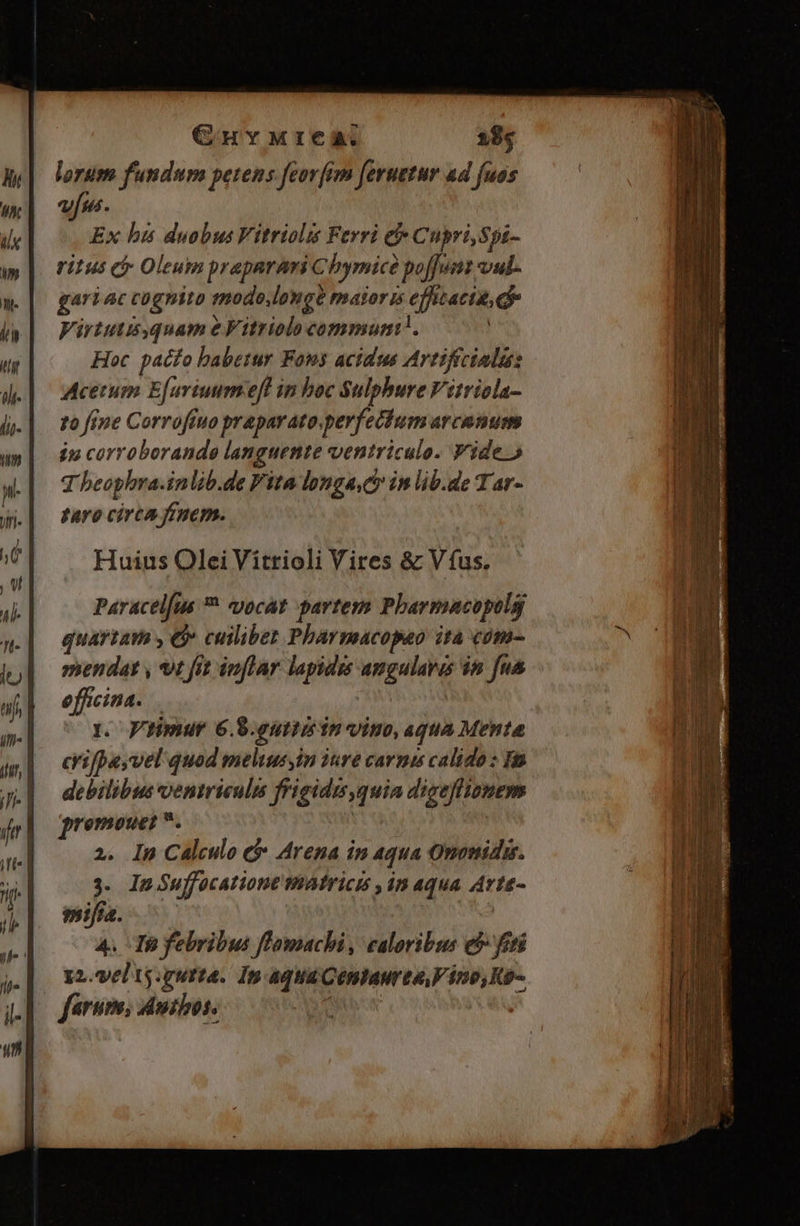 CHYMICA. 185
lorum fundum petens seorsim seruetur ad suos
vsus.
Ex his duobus Vitriolis Ferri & Cupri, Spi-
ritus & Oleum praparari Chymicè possunt vul-
gari ac cognito modo, longè maioris efficacia, &
Virtutis, quam è Vitriolo communi l.
Hoc pacto habetur Fons acidus Artificialis:
Acetum Esuriuum est in hoc Sulphure Vitriola-
to sine Corrosiuo praparato perfectum arcanum
in corroborando languente ventriculo. Vide
Theophra. in lib. de Vita longa, & in lib. de Tar-
taro circa finem.
Huius Olei Vitrioli Vires & Vsus.
Paracelsus m vocat partem Pharmacopolij
quartam, & cuilibet Pharmacopæo ita com-
mendat, vt sit instar lapidis angularis in sua
officina.
1. Vtimur 6. 8. guttis in vino, aqua Menta
crispa, vel quod melius, in iure carnis calido: In
debilibus ventriculis frigidis, quia digestionem
promouet n.
2. In Calculo & Arena in aqua Ononidis.
3. In Suffocatione matricis, in aqua Arte-
misia.
4. In febribus stomachi, caloribus & siti
12. vel 15. gutta. In aqua Centaurea, Vino, Ro-
sarum, Anthos.